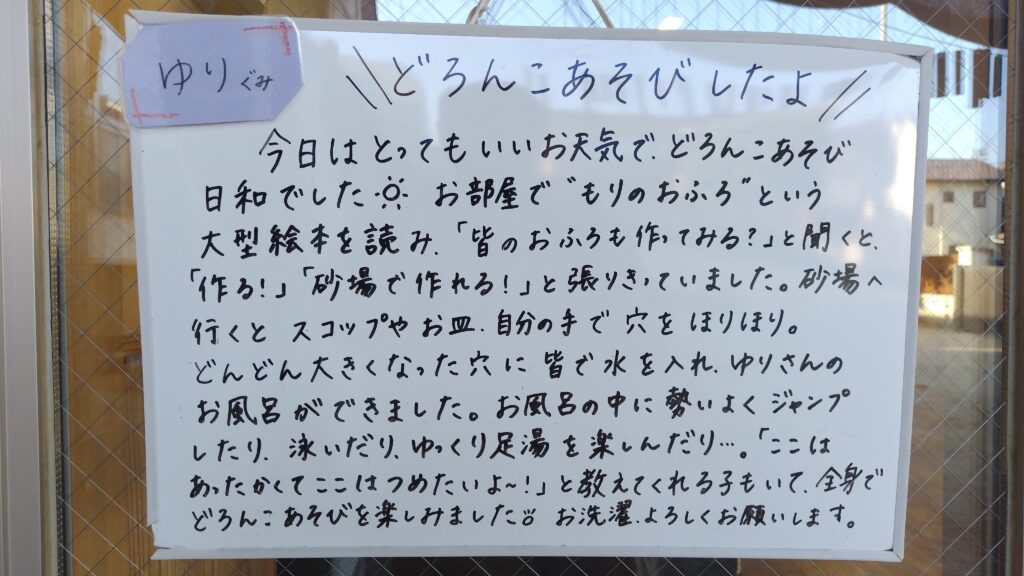 ゆりぐみ
どろんこあそびしたよ
今日はとってもいいお天気で、どろんこあそび
日和でした お部屋で"もりのおふろ"という
大型絵本を読み、「皆のおふろも作ってみる?」と聞くと、
「作る!」「砂場で作れる!」と張りきっていました。砂場へ
行くと スコップやお皿、自分の手で 穴を ほりほり。
どんどん大きくなった穴に 皆で水を入れ、ゆりさんの
お風呂ができました。お風呂の中に 勢いよく ジャンプ
したり、泳いだり、ゆっくり足湯を楽しんだり…。「ここは
あったかくてここはつめたいよ~!」と教えてくれる子もいて、全身で
どろんこあそびを楽しみました お洗濯、よろしくお願いします。